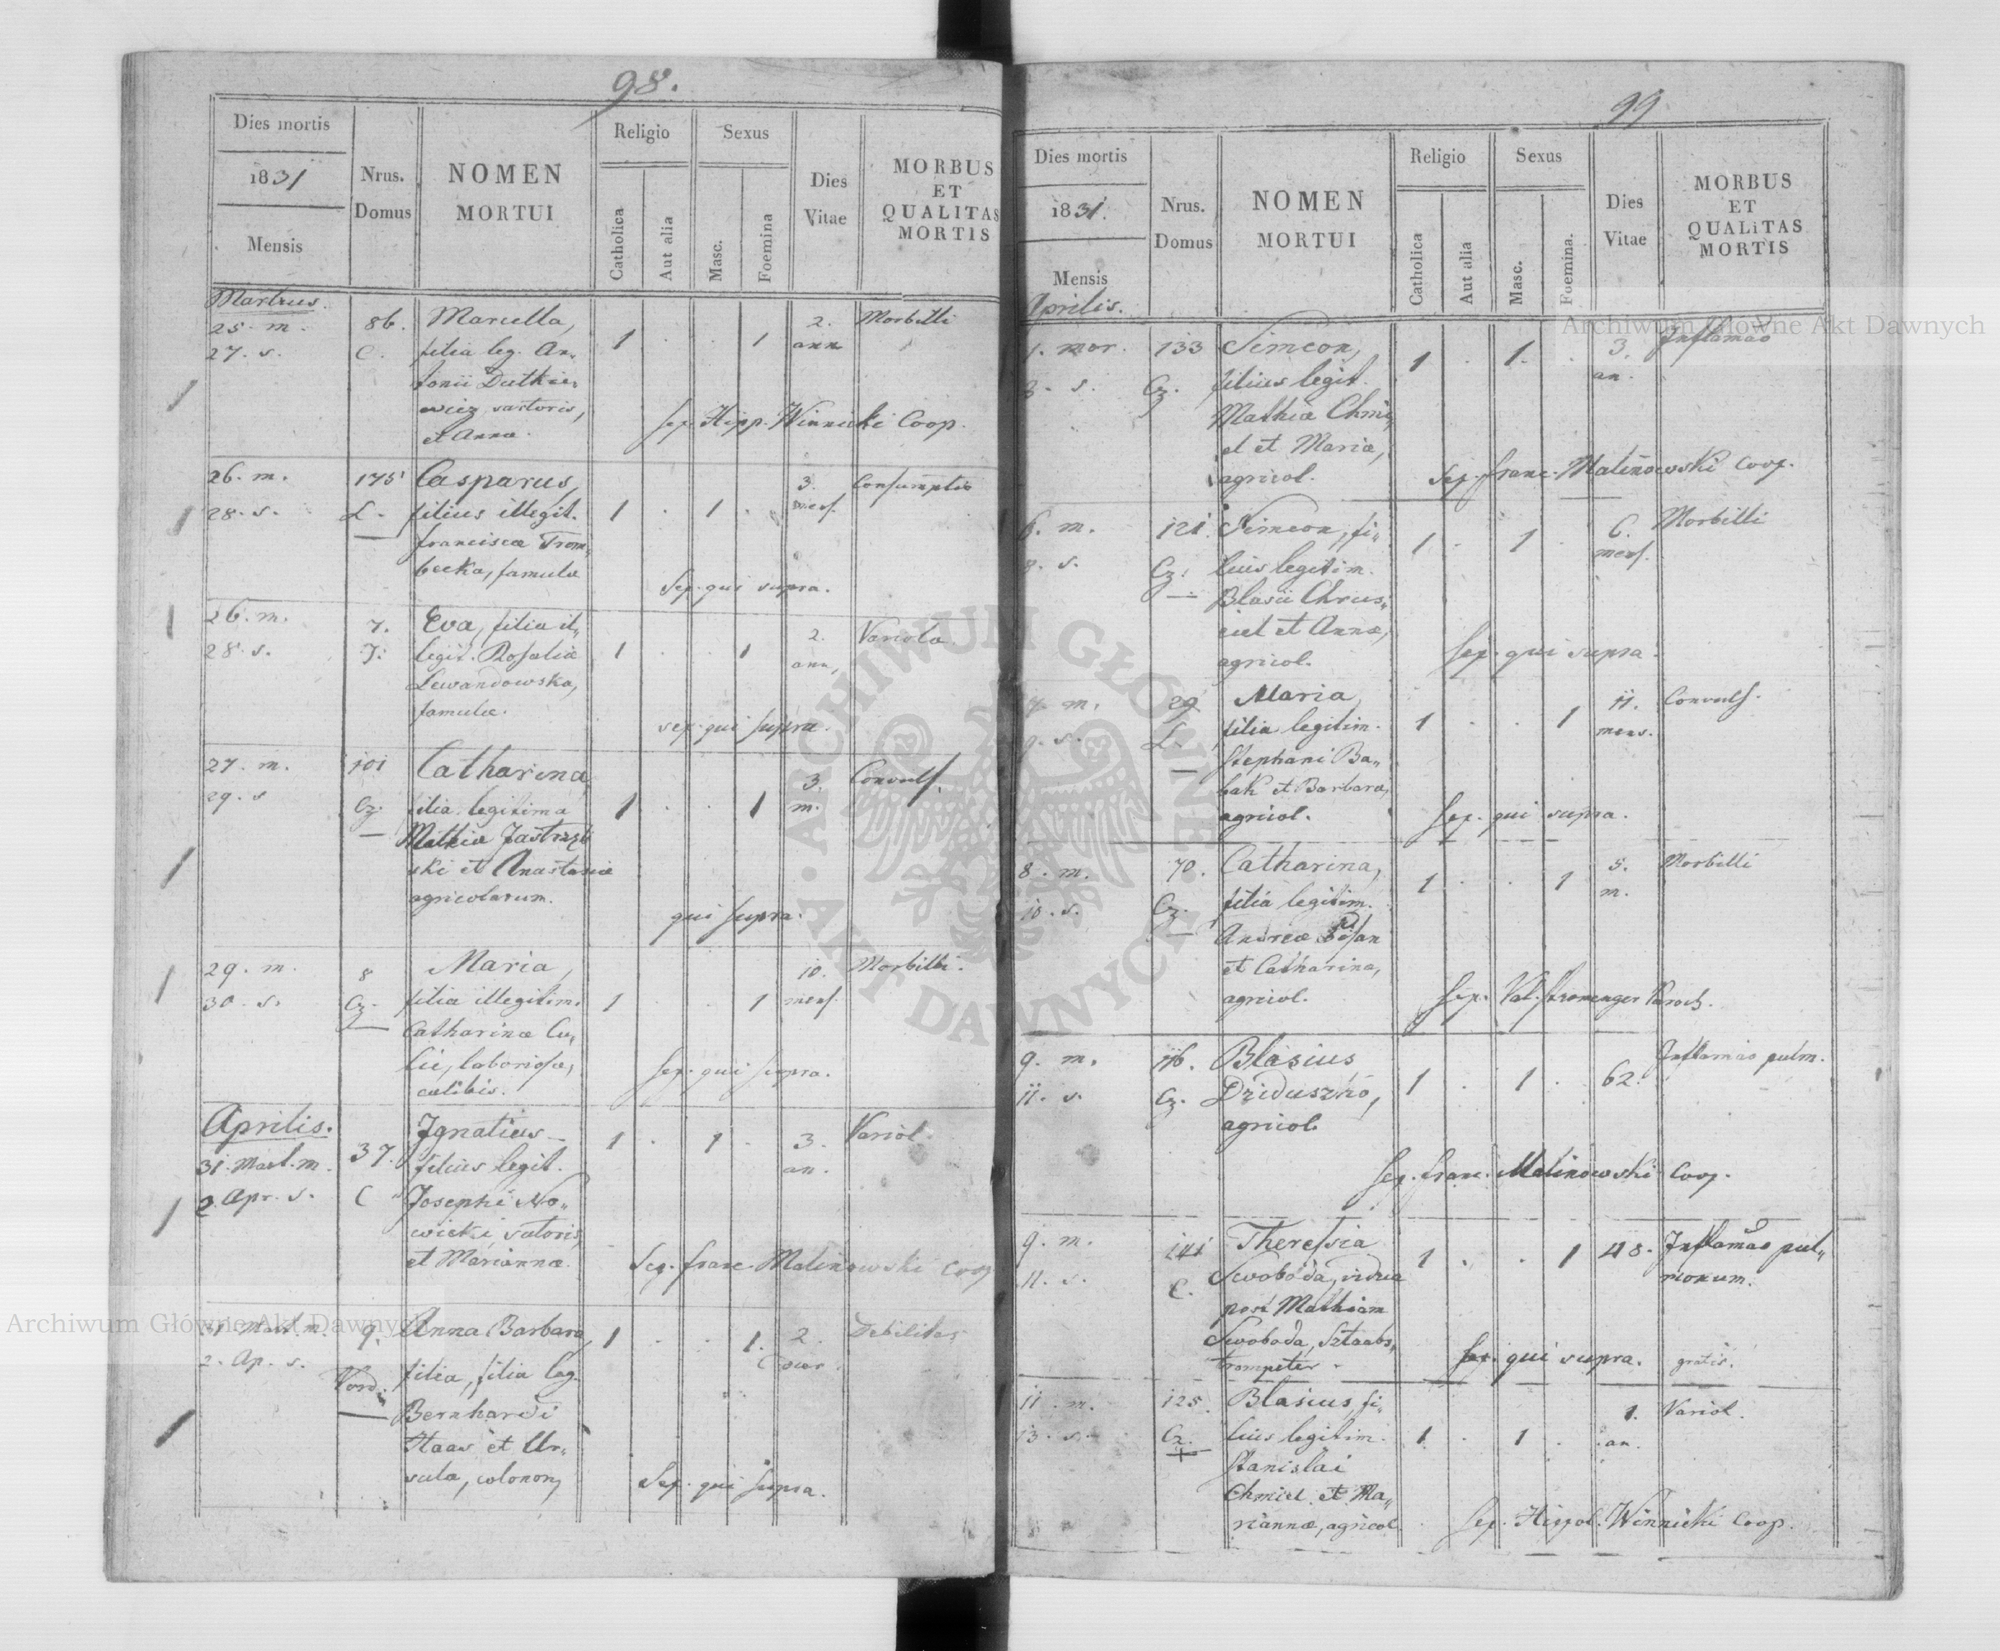 98.
Dies mortis
1831
Mensis
Nrus.
Domus
NOMEN
MORTUI
Religio
Catholica
Aut alia
Sexus
Masc.
Foemina
Dies
Vitae
MORBUS
ET
QUALITAS
MORTIS
Martius.
25. m. 86. Marcella, 1 . . 1 2. Morbilli
27. s. C. filia leg. An- ann
tonii Dutkie-
wicz, sartoris,
et Annæ.
Sep. Hipp. Winnicki Coop.
26. m. 175 Casparus, 3. Consumptio
28. s. L. filius illegit. 1 . 1 . mens.
Franciscæ Trom-
becka, famulæ
Sep. qui supra.
26. m. 7. Eva, filia il- 2. Variola
28. s. J. legit. Rosaliæ 1 . . 1 ann,
Lewandowska,
famulæ.
sep. qui supra.
27. m. 101 Catharina, 3. Convuls.
29. s Cz. filia legitima 1 . . 1 m.
Mathiæ Jastrzęb
ski et Anastasiæ
agricolarum.
qui supra.
29. m. 8 Maria, 10. Morbilli.
30. s. Cz. filia illegitim. 1 . . 1 mens.
Catharinæ Cu-
lic, laboriosæ,
cælibis.
Sep. qui supra.
Aprilis.
31. Mart. m. 37. Ignatius 1 . 1 . 3. Variol.
filius legit. an.
2. Apr. s. C Josephi No-
wicki, sutoris,
et Mariannæ.
Sep. Franc. Malinowski Coop
31. Mart. m 9. Anna Barbara, 1 . . 1. 2. Debilitas
2. Ap. s. filia, filia leg.
Bernhardi
Haas et Ur-
sula, colonor,
Sep. qui supra.
99
Dies mortis
1831.
Mensis
Nrus.
Domus
NOMEN
MORTUI
Religio
Catholica
Aut alia
Sexus
Masc.
Foemina.
Dies
Vitae
MORBUS
ET
QUALITAS
MORTIS
Aprilis.
1. mor. 133 Simeon, 1 . 1. . 3. Inflamao
3. s. Cz. filius legit. an.
Mathiæ Chmi-
el et Mariæ,
agricol.
Sep. Franc. Malinowski Coop.
6. m. 121. Simeon, fi- 1 . 1 . 6. Morbilli
s. Cz. lius legitim. mens.
Blasii Chrus-
ciel et Annæ,
agricol.
Sep. qui supra.
m. 29 Maria, 11. Convuls.
9. s. L. filia legitim. 1 . . 1 mens.
Stephani Ba-
bak et Barbaræ,
agricol.
Sep. qui supra.
8. m. 70. Catharina, 1 . . 1 5. Morbilli
10. s. Cz. filia legitim. m.
Andreæ
et Catharina,
agricol.
Sep. Val. Paroch.
9. m. 116. Blasius 1 . 1 . 62. Inflamao pulm.
11. s. Cz. Dziduszko,
agricol.
Sep. Franc. Malinowski Coop.
9. m. 141 Theresia 1 . . 1 48. Inflamao pul-
11. s. C. Swoboda, vidua monum.
post Mathiam
Swoboda, Sztaabs,
trompeter.
Sep. qui supra. gratis.
11. m. 125. Blasius, fi- 1. Variol.
13. s. Cz. lius legitim. 1 . 1 . an.
Stanislai
Chmiel et Ma-
riannæ, agricol.
Sep. Hippol. Winnicki Coop.
Archiwum Główne Akt Dawnych
Archiwum Główne Akt Dawnych
ARCHIWUM GŁÓWNE
AKT DAWNYCH